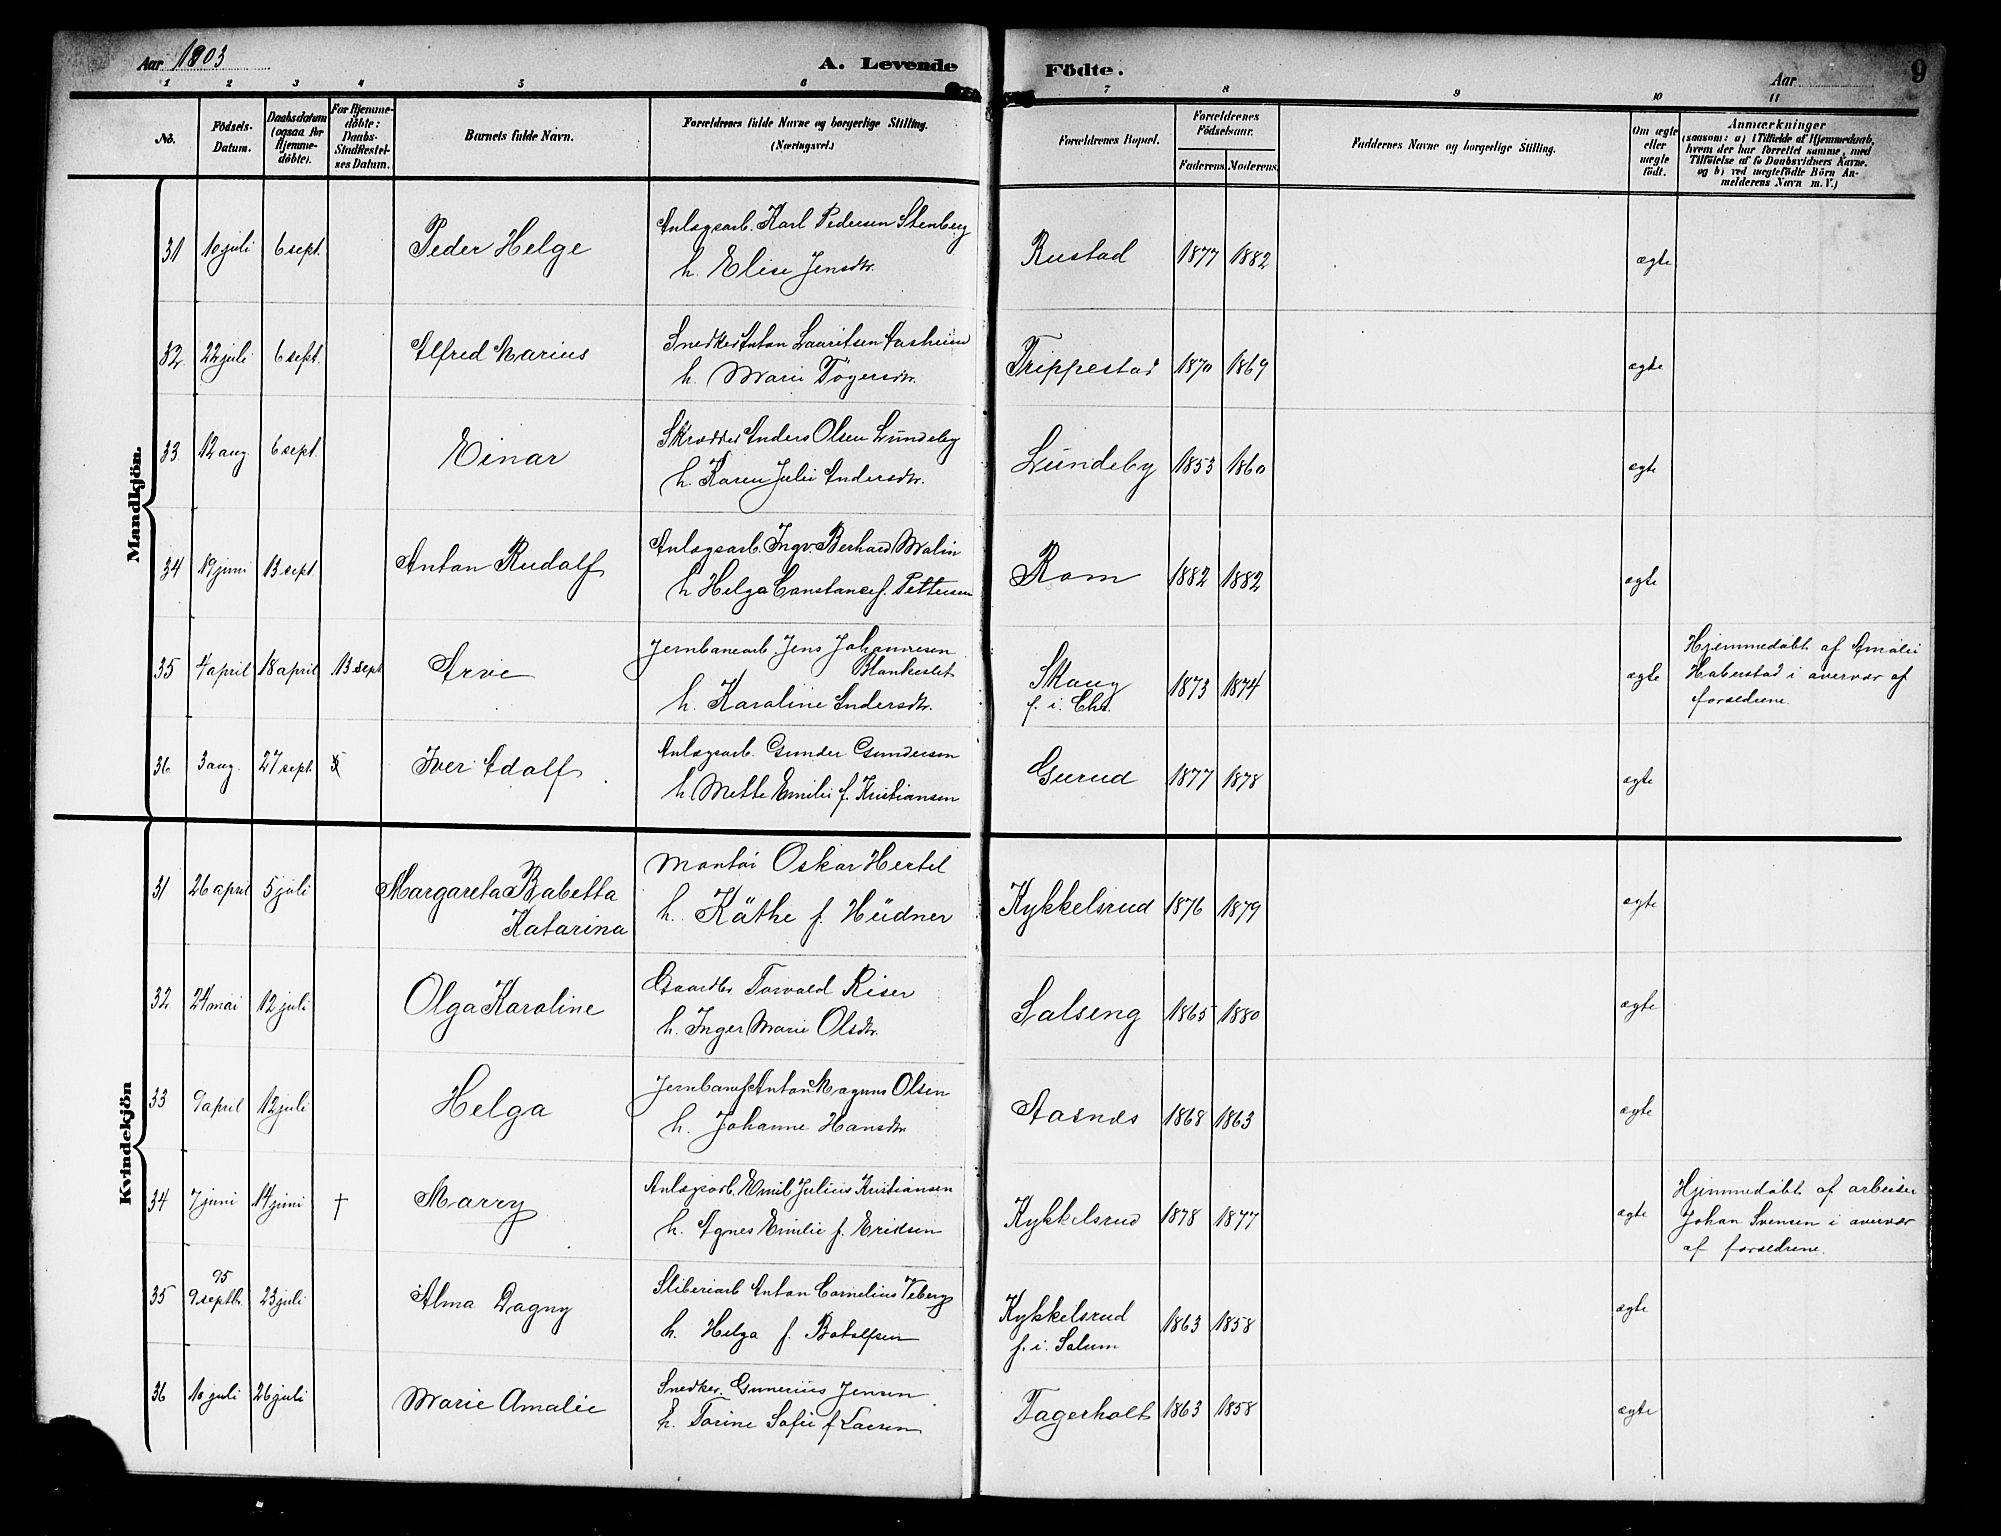 Aar 1903
A. Levende Födte.
Aar
9
1 2 3 4 5 6 7 8 9 10 11
No.
Födsels-Datum.
Daabsdatum (ogsaa for Hjemmedöbte).
For Hjemmedöbte: Daabs-Stadfæstelses Datum.
Barnets fulde Navn.
Forældrenes fulde Navne og borgerlige Stilling. (Næringsvei.)
Forældrenes Bopæl.
Forældrenes Födselsaar.
Faderens. Moderens.
Faddernes Navne og borgerlige Stilling.
Om ægte eller uægte födt.
Anmærkninger
(saasom: a) i Tilfælde af Hjemmedaab, hvem der har forrettet samme, med Tilföielse af to Daabsvidners Navne. og b) ved uægtefödte Börn Anmelderens Navn m. V.)
Mandkjön.
31 10 juli 6 sept. Peder Helge Anlægsarb. Karl Pedersen Stenberg Rustad 1877 1882 ægte
h. Elise Jensdtr.
32. 22 juli 6 sept. Alfred Marius Snedker Anton Lauritsen Aasheim Trippestad 1870 1869 ægte
h. Marie Tögersdtr.
33. 12 aug. 6 sept. Einar Skrædder Anders Olsen Lundeby Lundeby 1853 1860 ægte
h. Karen Julie Andersdtr.
34 19 juni 13 sept. Anton Rudolf Anlægsarb. Ingv. Berhard Malin Rom 1882 1882 ægte
h Helga Constance f. Pettersen
35 4 april 18 april 13 sept Arve Jernbanearb Jens Johannesen Skaug 1873 1874 ægte Hjemmedöbt af Amalie
Blankeslet f. i. Chr. Haberstad i overvær af
h. Karoline Andersdtr. forældrene.
36 3 aug. 27 sept. Iver Adolf Anlægsarb. Gunder Gundersen Gurud 1877 1878 ægte
h. Mette Emilie f. Kristiansen
Kvindekjön
31 26 april 5 juli Margareta Babetta Montör Oskar Hertel Kykkelsrud 1876 1879 ægte
Katarina h. Käthe f. Hüdner
32. 24 mai 12 juli Olga Karoline Gaardbr Torvald Riser Salseng 1865 1880 ægte
h. Inger Marie Olsdtr.
33 9 april 12 juli Helga Jernbanef Anton Magnus Olsen Aasnæs 1868 1863 ægte
h. Johanne Hansdtr
34 7 juni 14 juni † Marry Anlægsarb. Emil Julius Kristiansen Kykkelsrud 1878 1877 ægte Hjemmedöbt af arbeider
h. Agnes Emilie f. Eriksen Johan Svensen i overvær
af forældrene.
35 95
9 septbr. 23 juli Alma Dagny Sliberiarb Anton Cornelius Veberg Kykkelsrud 1863 1858 ægte
h. Helga f. Botolfsen f. i. Solum
36 10 juli 26 juli Marie Amalie Snedker. Gunerius Jensen Fagerholt 1863 1858 ægte
h. Torine Sofie f Larsen